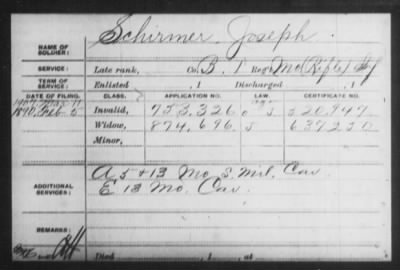 NAME OF SOLDIER:
Schirmer, Joseph.
SERVICE:
Late rank, Co. B, 1 Reg't Mo (Rifle) Inf
TERM OF SERVICE:
Enlisted , 1 Discharged , 1
DATE OF FILING. CLASS. APPLICATION NO. LAW. CERTIFICATE NO.
1890, Feb 5 Invalid, 753,326
Widow, 874,696 637250
Minor,
ADDITIONAL SERVICES:
A 5 & 13 Mo S. Mil. Cav
E 13 Mo. Cav.
REMARKS:
Died , 1 , at